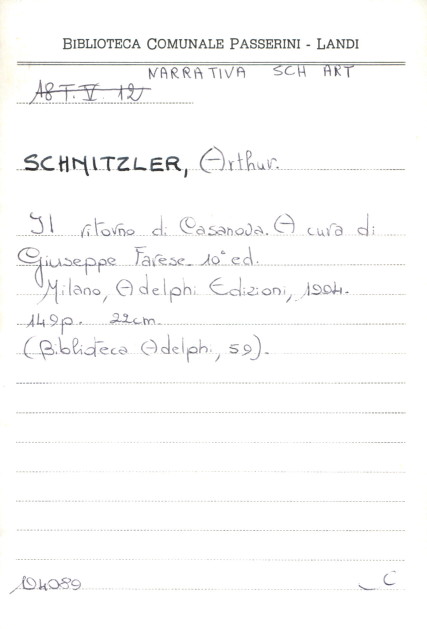 BIBLIOTECA COMUNALE PASSERINI - LANDI
NARRATIVA SCH ART
A8 T. V. 12
SCHNITZLER, Arthur.
Il ritorno di Casanova. A cura di
Giuseppe Farese. 10° ed.
Milano, Adelphi Edizioni, 1994.
149p. 22cm.
(Biblioteca Adelphi, 59).
194989
C